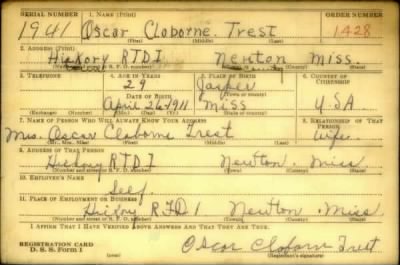 SERIAL NUMBER 1. NAME (Print) ORDER NUMBER
1941 Oscar Claborne Trest 1428
(First) (Middle) (Last)
2. ADDRESS (Print)
Hickory RTDI Newton Miss
3. TELEPHONE 4. AGE IN YEARS 5. PLACE OF BIRTH 6. COUNTRY OF CITIZENSHIP
29 Jasper
DATE OF BIRTH (Town or county)
April 26 1911 Miss U.S.A.
(Exchange) (Number) (Mo.) (Day) (Yr.) (State or country)
7. NAME OF PERSON WHO WILL ALWAYS KNOW YOUR ADDRESS 8. RELATIONSHIP OF THAT PERSON
Mrs. Oscar Claborne Trest Wife
(Mr., Mrs., Miss) (First) (Middle) (Last)
9. ADDRESS OF THAT PERSON
Hickory RTDI Newton Miss
(Number and street or R. F. D. number) (Town) (County) (State)
10. EMPLOYER'S NAME
Self
11. PLACE OF EMPLOYMENT OR BUSINESS
Hickory RFD 1 Newton Miss
(Number and street or R. F. D. number) (Town) (County) (State)
I AFFIRM THAT I HAVE VERIFIED ABOVE ANSWERS AND THAT THEY ARE TRUE.
REGISTRATION CARD
D. S. S. Form 1 Oscar Claborn Trest
(over) (Registrant's signature)